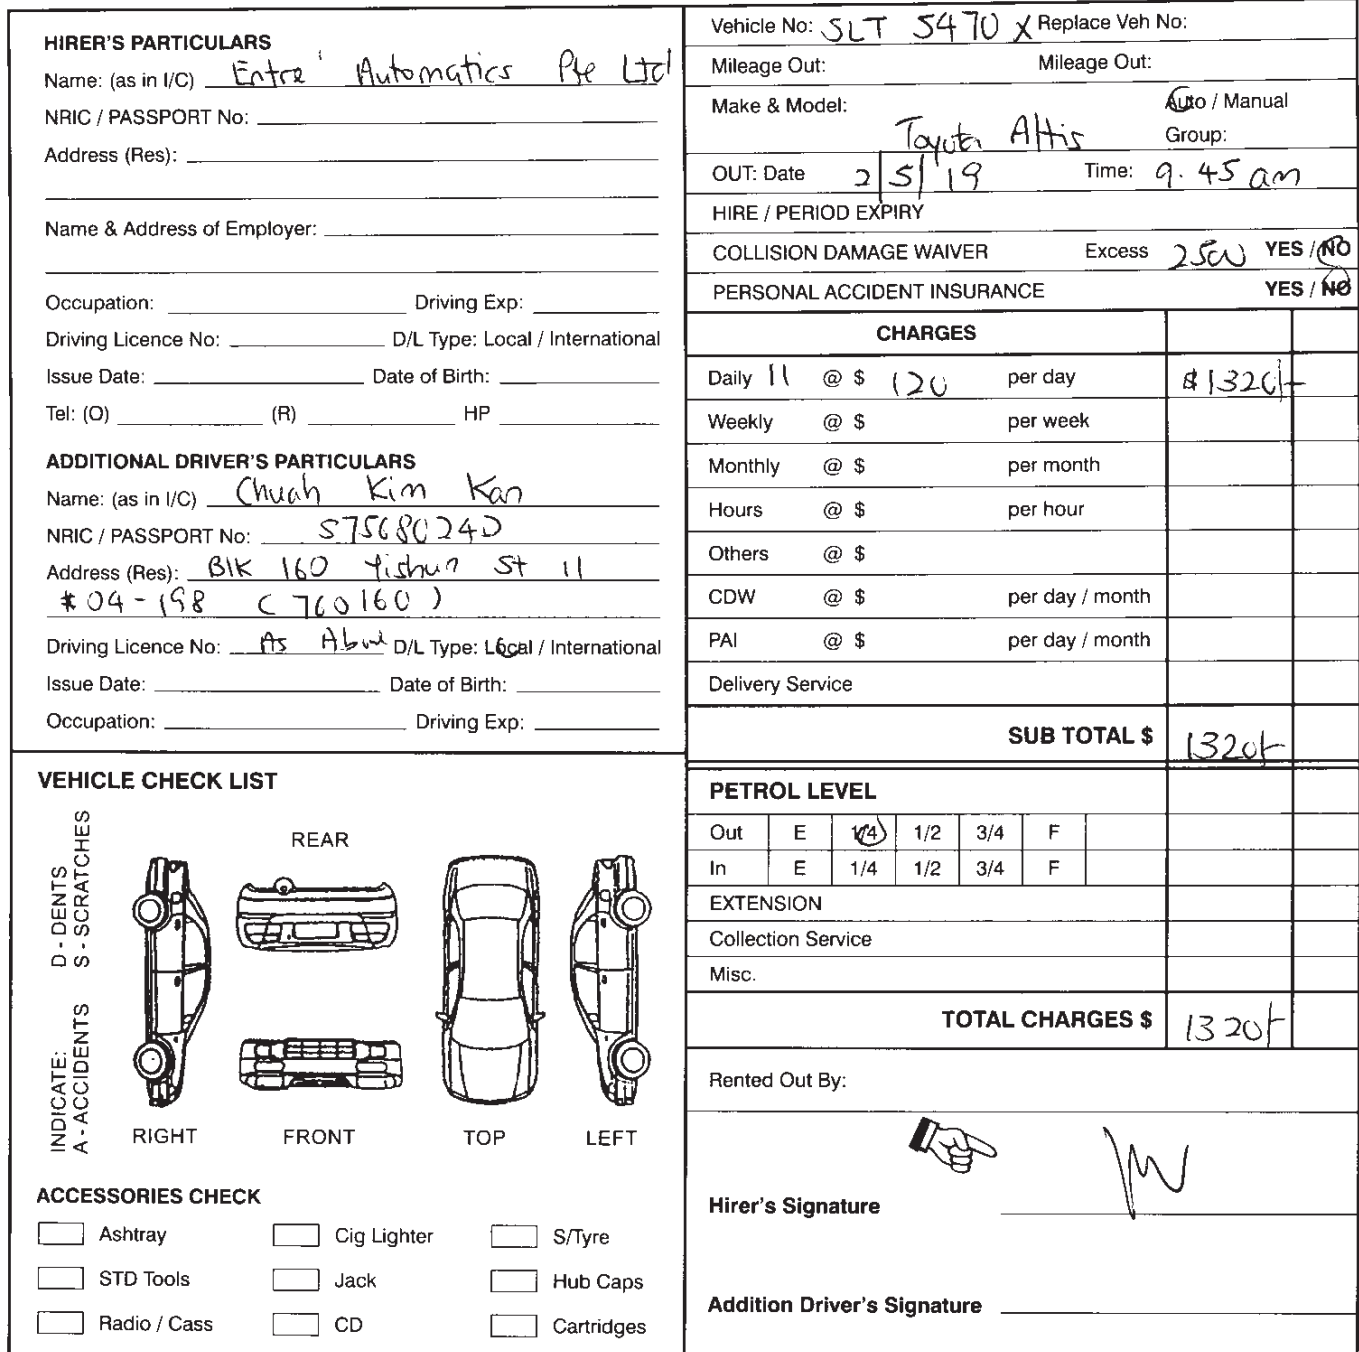 HIRER'S PARTICULARS
Name: (as in I/C) Entre' Automatics Pte Ltd
NRIC / PASSPORT No:
Address (Res):
Name & Address of Employer:
Occupation: Driving Exp:
Driving Licence No: D/L Type: Local / International
Issue Date: Date of Birth:
Tel: (O) (R) HP
ADDITIONAL DRIVER'S PARTICULARS
Name: (as in I/C) Chuah Kim Kan
NRIC / PASSPORT No: S7568024D
Address (Res): Blk 160 Yishun St 11
#04-198 (760160)
Driving Licence No: As Above D/L Type: Local / International
Issue Date: Date of Birth:
Occupation: Driving Exp:
VEHICLE CHECK LIST
INDICATE: D - DENTS
A - ACCIDENTS S - SCRATCHES
REAR
RIGHT FRONT TOP LEFT
ACCESSORIES CHECK
Ashtray Cig Lighter S/Tyre
STD Tools Jack Hub Caps
Radio / Cass CD Cartridges
Vehicle No: SLT 5470 X Replace Veh No:
Mileage Out: Mileage Out:
Make & Model: Auto / Manual
Toyota Altis Group:
OUT: Date 2/5/19 Time: 9.45 am
HIRE / PERIOD EXPIRY
COLLISION DAMAGE WAIVER Excess 2500 YES / NO
PERSONAL ACCIDENT INSURANCE YES / NO
CHARGES
Daily 11 @ $ 120 per day $1320/-
Weekly @ $ per week
Monthly @ $ per month
Hours @ $ per hour
Others @ $
CDW @ $ per day / month
PAI @ $ per day / month
Delivery Service
SUB TOTAL $ 1320/-
PETROL LEVEL
Out E 1/4 1/2 3/4 F
In E 1/4 1/2 3/4 F
EXTENSION
Collection Service
Misc.
TOTAL CHARGES $ 1320/-
Rented Out By:
Hirer's Signature
Addition Driver's Signature